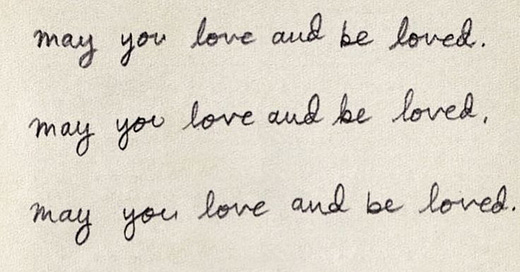 may you love and be loved.
may you love and be loved,
may you love and be loved.